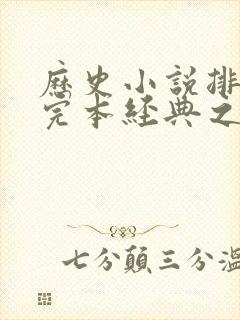 歷史小說排
完本經典之
七分顛三分溫